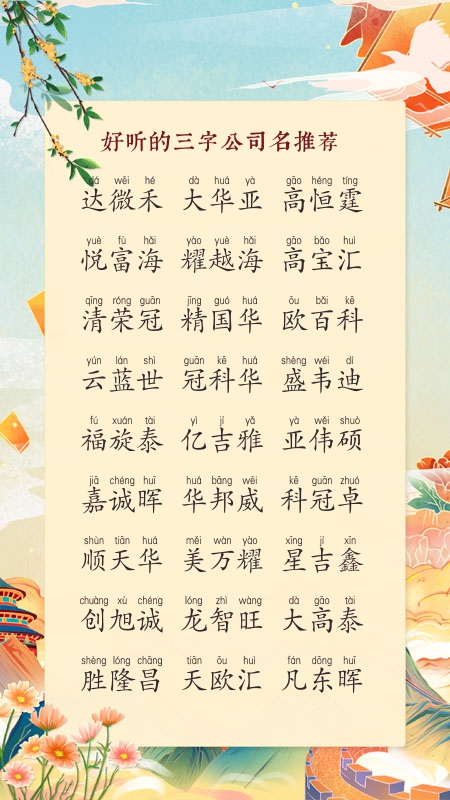 好听的三字公司名推荐
dá wēi hé dà huá yà gāo héng tíng
达微禾 大华亚 高恒霆
yuè fù hǎi yào yuè hǎi gāo bǎo huì
悦富海 耀越海 高宝汇
qīng róng guān jīng guó huá ōu bǎi kē
清荣冠 精国华 欧百科
yún lán shì guān kē huá shèng wéi dí
云蓝世 冠科华 盛韦迪
fú xuán tài yì jí yǎ yà wěi shuò
福旋泰 亿吉雅 亚伟硕
jiā chéng huī huá bāng wēi kē guān zhuó
嘉诚晖 华邦威 科冠卓
shùn tiān huá měi wàn yào xīng jí xīn
顺天华 美万耀 星吉鑫
chuàng xù chéng lóng zhì wàng dà gāo tài
创旭诚 龙智旺 大高泰
shèng lóng chāng tiān ōu huì fán dōng huī
胜隆昌 天欧汇 凡东晖